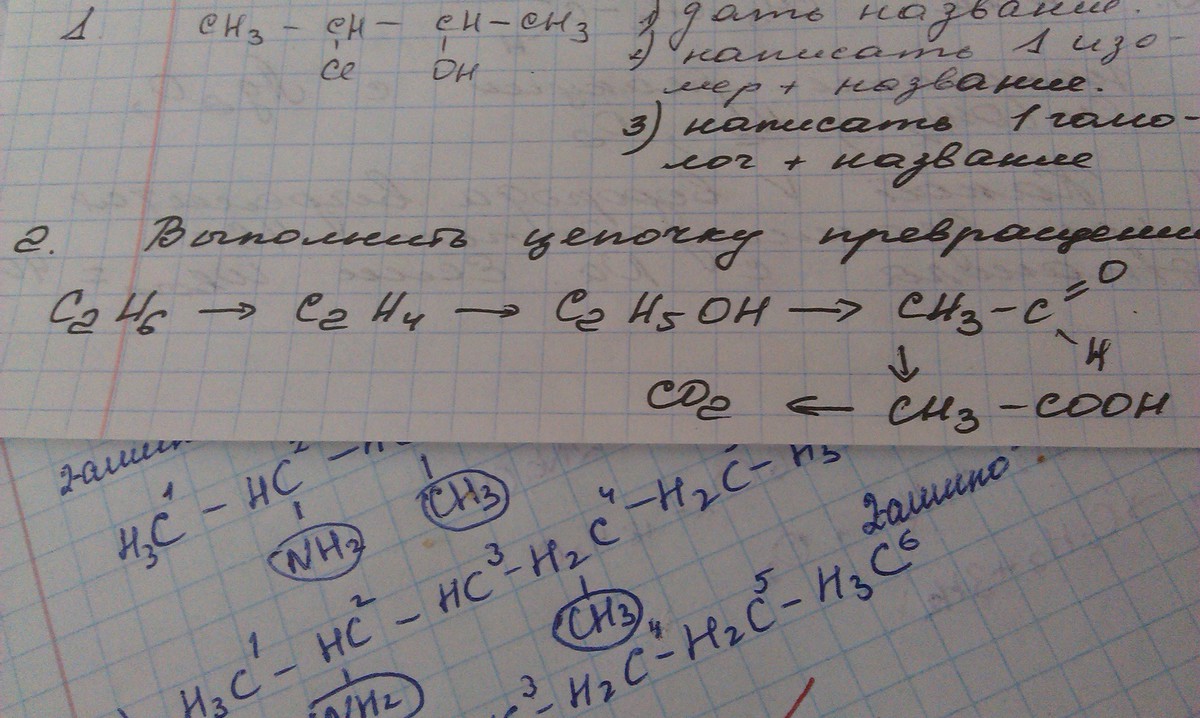 1. CH3 - CH - CH - CH3 1) дать название.
Cl OH 2) написать 1 изо-
мер + название.
3) написать 1 гомо-
лог + название
2. Выполнить цепочку превращений
C2H6 → C2H4 → C2H5OH → CH3-C=O
H
↓
CO2 ← CH3-COOH
2-амин
H3C1 - HC2 - HC
NH2 CH3
H3C1 - HC2 - HC3 - H2C4 - H2C - H3
NH2 CH3
2-амино
3 - H2C4 - H2C5 - H3C6